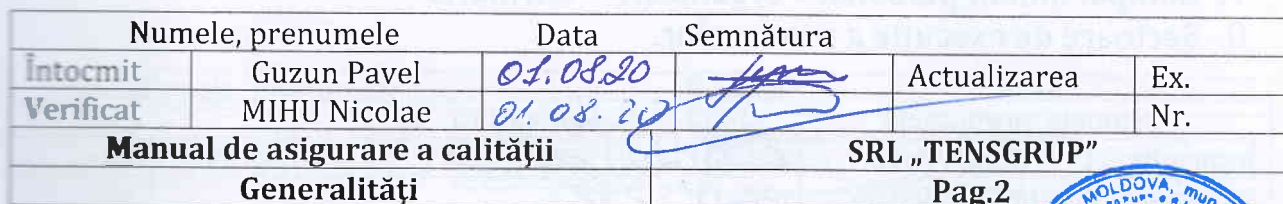 Numele, prenumele Data Semnătura
Întocmit Guzun Pavel 01.08.20 Actualizarea Ex.
Verificat MIHU Nicolae 01.08.20 Nr.
Manual de asigurare a calităţii SRL „TENSGRUP”
Generalităţi Pag.2
MOLDOVA, mun